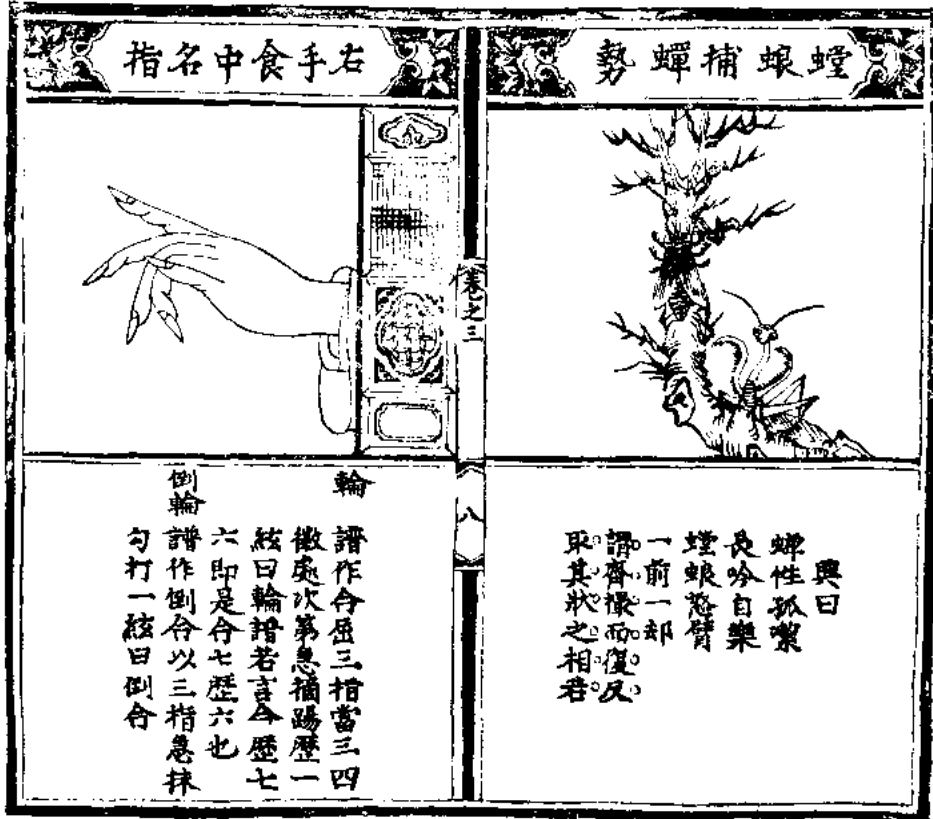 螳蜋捕蟬勢
興曰
蟬性孤潔
長吟自樂
螳蜋怒臂
一前一却
謂齊撮而復反
取其狀之相若
卷之三
八
右手食中名指
輪
譜作合屈三指當三四
徽處次第急摘踢歷一
絃曰輪譜若言合歷七
六即是合七歷六也
倒輪
譜作倒合以三指急抹
勾打一絃曰倒合